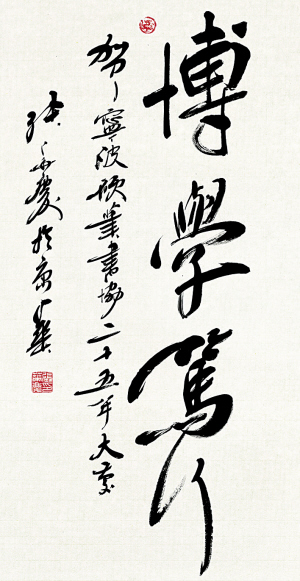 博學篤行
賀寧波碩業書協二十五年大慶
張予慶於京華